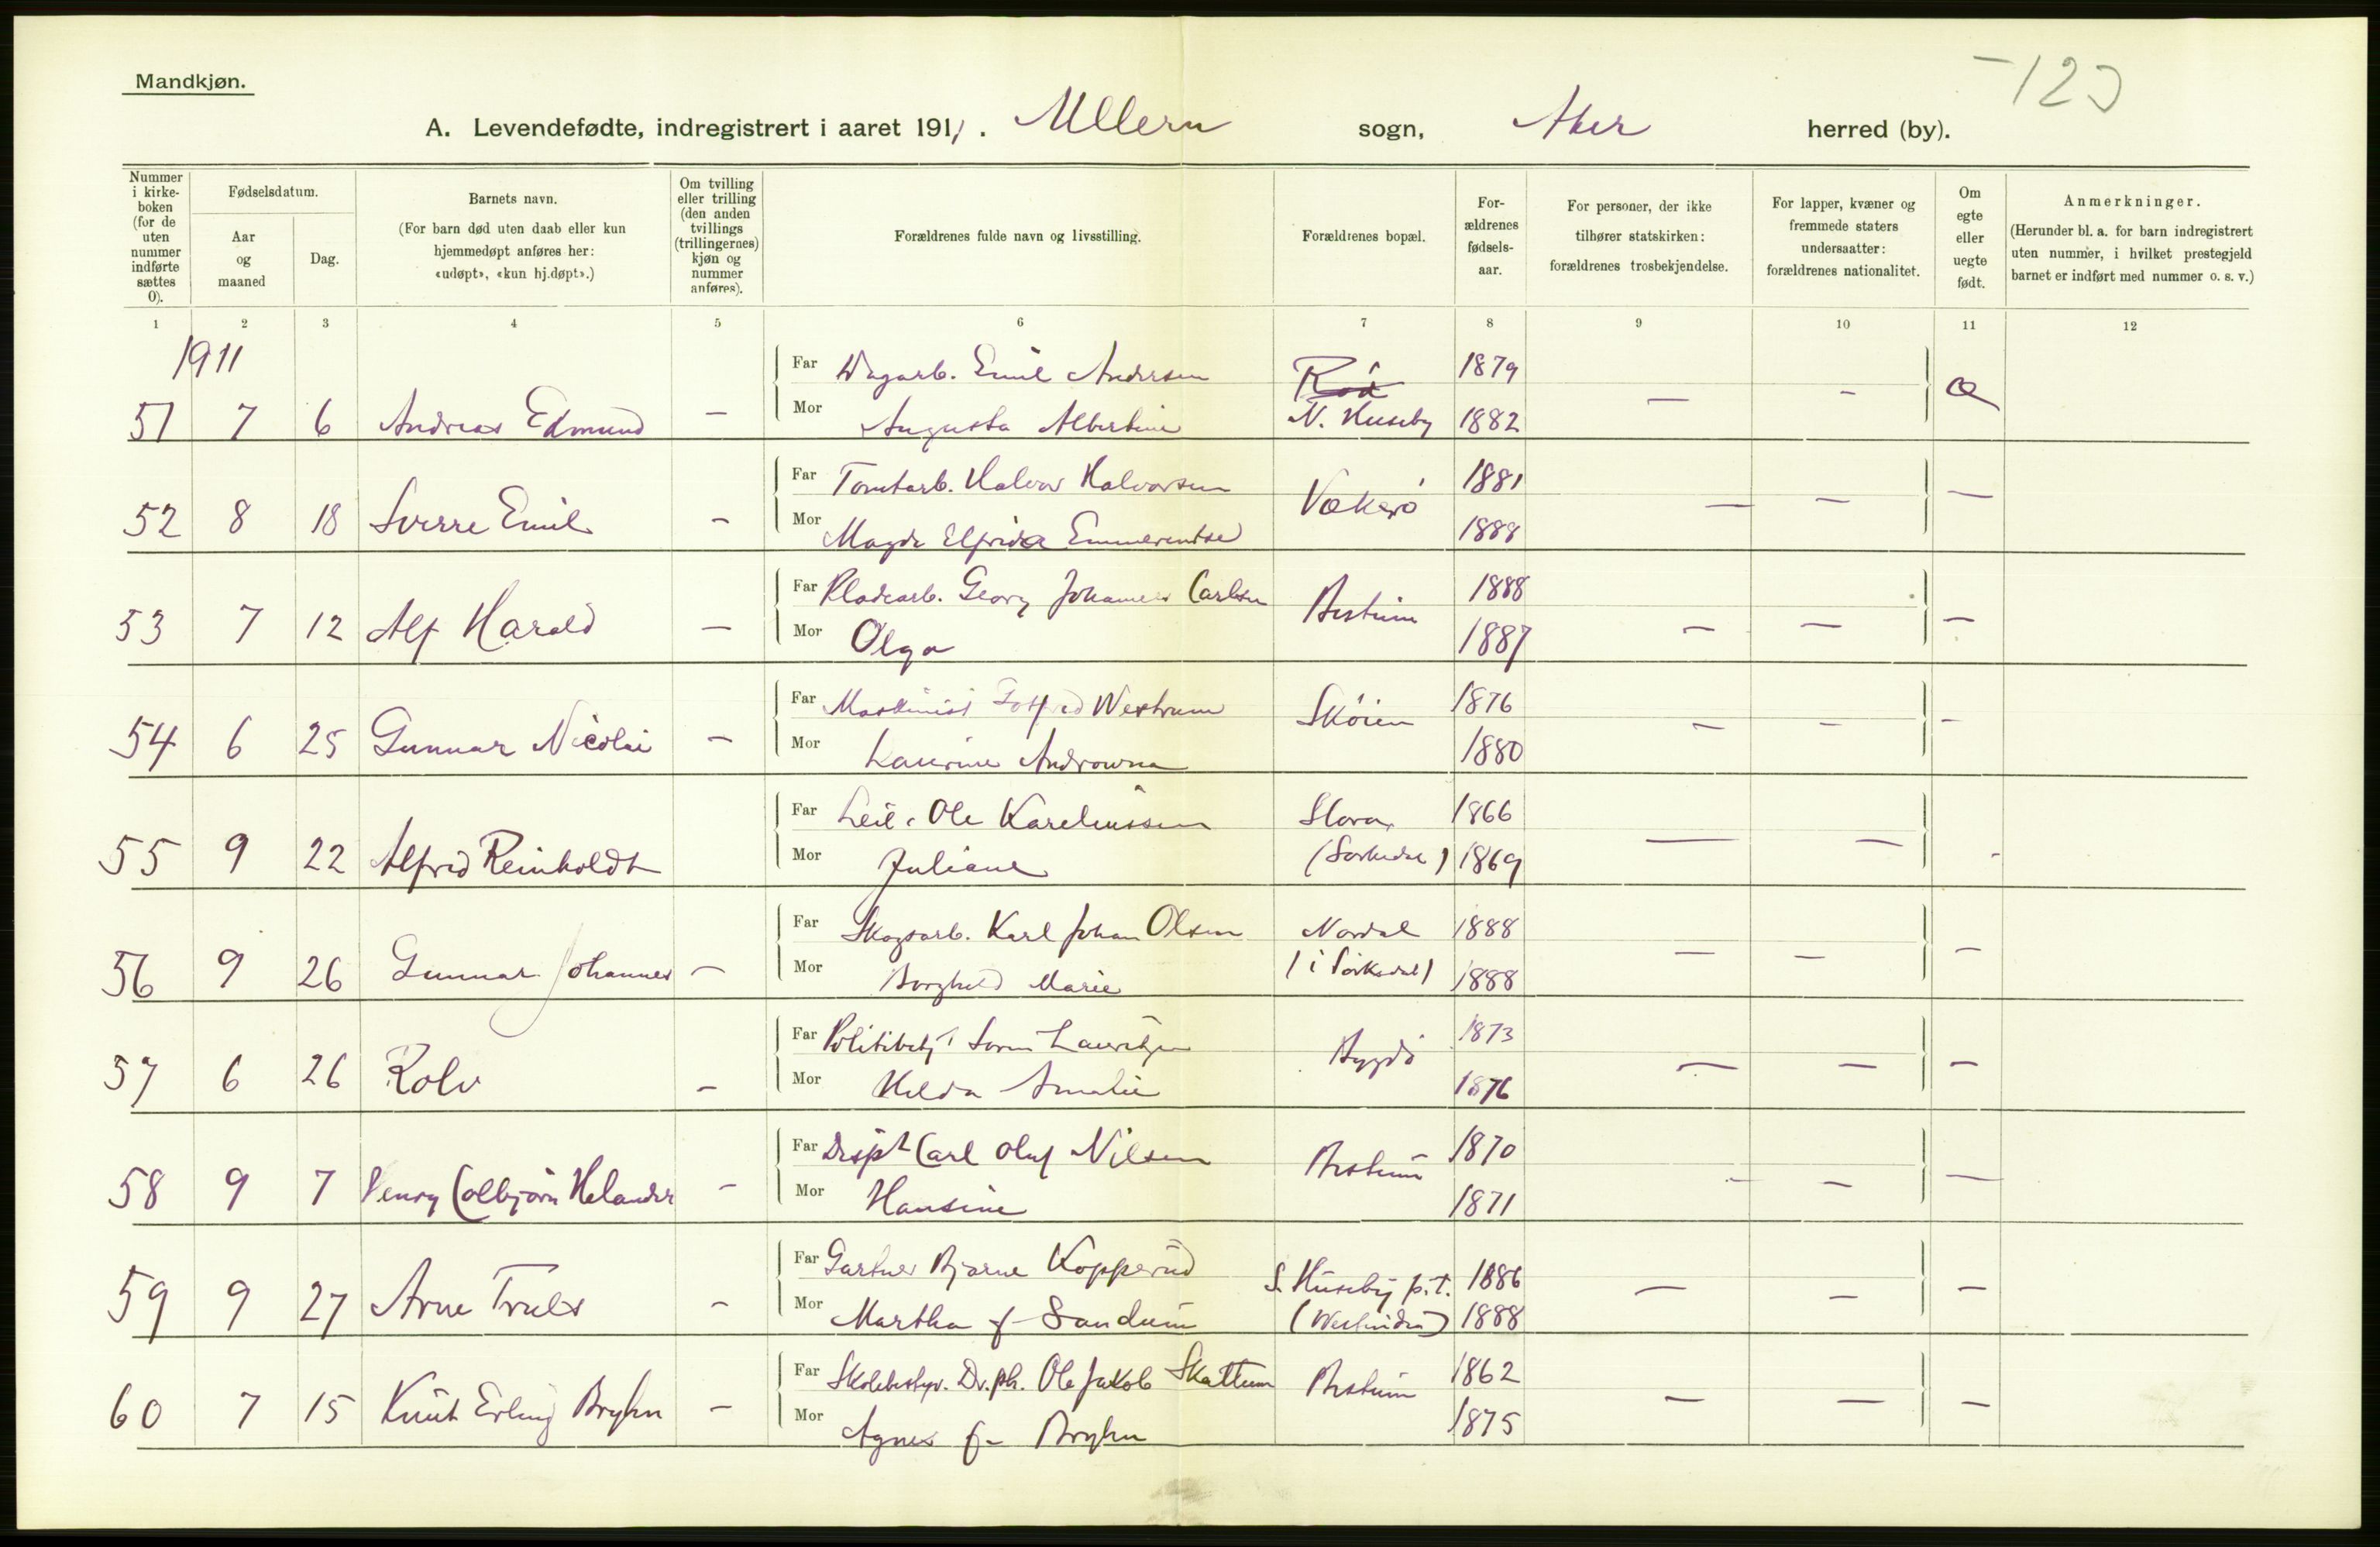 Mandkjøn.
-123
A. Levendefødte, indregistrert i aaret 1911. Ullern sogn, Aker herred (by).
Nummer i kirke-boken (for de uten nummer indførte sættes 0).
Fødselsdatum.
Aar og maaned
Dag.
Barnets navn.
(For barn død uten daab eller kun hjemmedøpt anføres her: «udøpt», «kun hj.døpt».)
Om tvilling eller trilling (den anden tvillings (trillingernes) kjøn og nummer anføres).
Forældrenes fulde navn og livsstilling.
Forældrenes bopæl.
For-ældrenes fødsels-aar.
For personer, der ikke tilhører statskirken: forældrenes trosbekjendelse.
For lapper, kvæner og fremmede staters undersaatter: forældrenes nationalitet.
Om egte eller uegte født.
Anmerkninger.
(Herunder bl. a. for barn indregistrert uten nummer, i hvilket prestegjeld barnet er indført med nummer o. s. v.)
1 2 3 4 5 6 7 8 9 10 11 12
1911
Far Dagarb. Emil Andersen Röd 1879
51 7 6 Andreas Edmund - Mor Augusta Albertine N. Huseby 1882 - - Æ
Far Tomtarb. Halvor Halvorsen Vækerö 1881
52 8 18 Sverre Emil - Mor Magda Elfrida Emmerentse 1888 - - -
Far Pladearb. Georg Johannes Carlsen Bestum 1888
53 7 12 Alf Harald - Mor Olga 1887 - - -
Far Maskinist Gotfred Westrum Sköien 1876
54 6 25 Gunnar Nicolai - Mor Laurine 1880 - - -
Far Leil. Ole Kareliussen Slora 1866
55 9 22 Alfred Reinholdt Mor Juliane (Sörkedal) 1869 - - -
Far Skogsarb. Karl Johan Olsen Nordal 1888
56 9 26 Gunnar Johannes - Mor Borghild Marie (i Sörkedal) 1888 - - -
Far Politibetj. Sören Lauritzen Bygdö 1873
57 6 26 Rolv - Mor Hilda Amalie 1876 - - -
Far Carl Oluf Nilsen Bestum 1870
58 9 7 Henry Colbjörn Helander - Mor Hansine 1871 - - -
Far Gartner Bjarne Kopperud S. Huseby p.t. 1886
59 9 27 Arne Truls - Mor Martha f. Sandum 1888 - - -
Far Skolebestyr. Dr. ph. Ole Jakob Skattum Bestum 1862
60 7 15 Knut Erling Bryhn - Mor Agnes f. Bryhn 1875 - - -